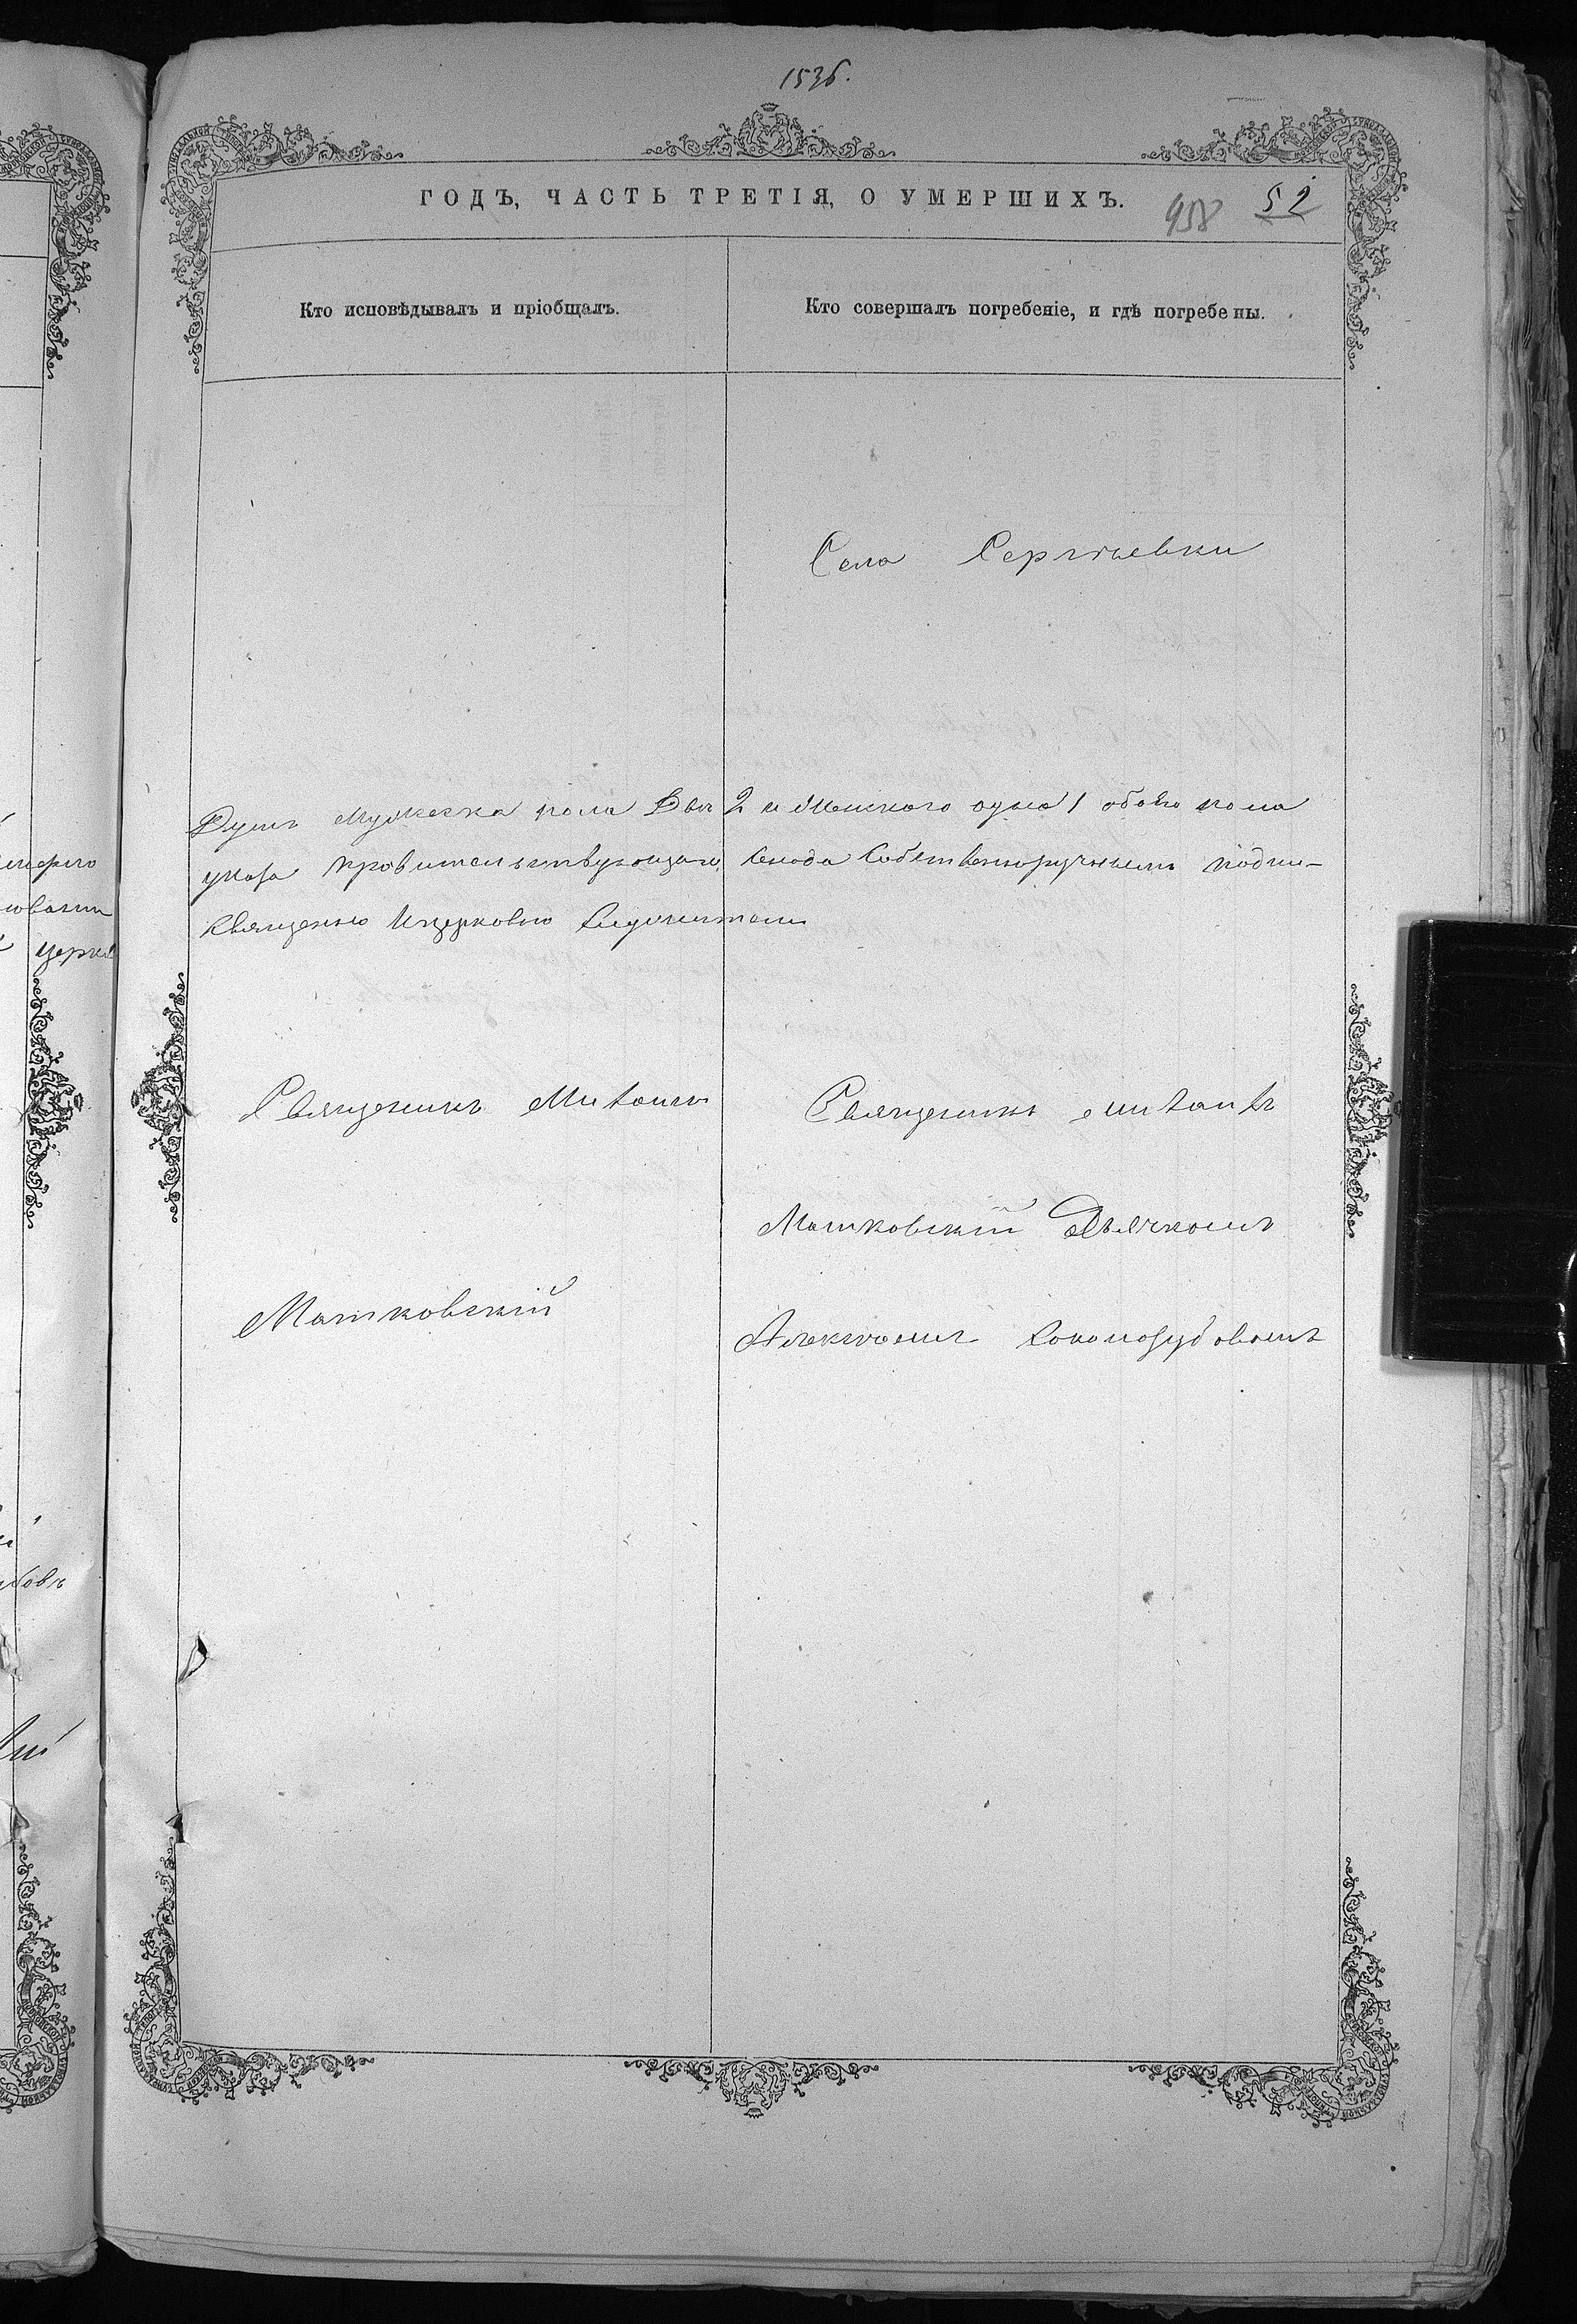 1536.
ГОДЪ, ЧАСТЬ ТРЕТІЯ, О УМЕРШИХЪ.
958 52
Кто исповѣдывалъ и пріобщалъ.
Кто совершалъ погребеніе, и гдѣ погребены.
Села Сергѣевки
Душъ мужеска пола Два 2 и Женского одна 1 обоего пола
указа правительствующаго Сенода Собственноручнымъ подпи-
Священно и церковно служители
Священикъ Митаилъ
Матковскій
Священикъ Митаилъ
Матковскій Дьячкомъ
Алексѣемъ
церкв